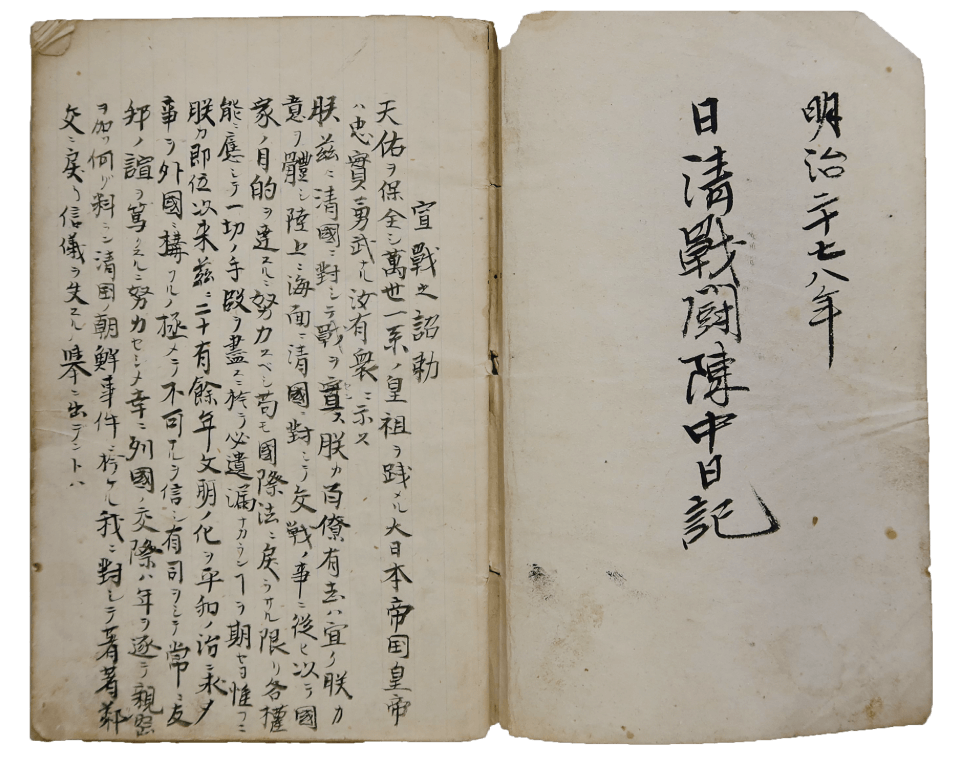 明治二十七八年
日清戰闘陳中日記
宣戰之詔勅
天佑ヲ保全シ萬世一系ノ皇祖ヲ践メル大日本帝国皇帝
ハ忠實勇武ナル汝有衆ニ示ス
朕茲ニ清國ニ對シテ戰ヲ宣ス朕カ百僚有志ハ宜ノ朕カ
意ヲ體シ陸上ニ海面ニ清國ニ對シテ交戰ノ事ニ從ヒ以テ國
家ノ目的ヲ達スルニ努力スベシ苟モ國際法ニ戻ラサル限リ各權
能ニ應シテ一切ノ手段ヲ盡スニ於テ必遺漏ナカランヿヲ期セヨ惟フニ
朕カ即位以来茲ニ二十有餘年文明ノ化ヲ平和ノ治ニ求メ
事ヲ外國ニ構フルノ極メテ不可ナルヲ信シ有司ヲシテ常ニ友
邦ノ誼ヲ篤クスルニ努力セシメ幸ニ列國ノ交際ハ年ヲ逐テ親密
ヲ加フ何ソ料ラン清国ノ朝鮮事件ニ於ケル我ニ對シテ著著鄰
交ニ戻リ信儀ヲ失スルノ擧ニ出テントハ